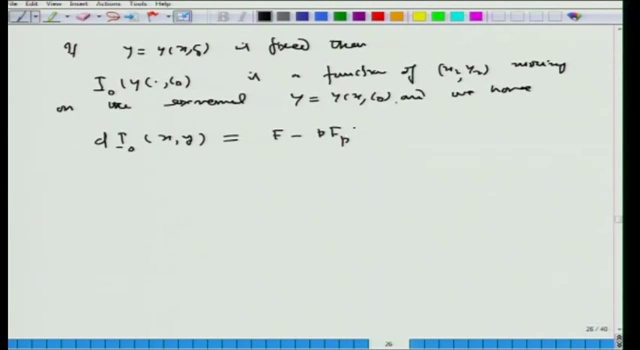 File Edit View Insert Actions Tools Help
If y = y(x, c₀) is fixed then
I₀(y(·, c₀) is a function of (x₂, y₂) moving
on the extremal y = y(x, c₀) and we have
d I₀ (x, y) = F - pFₚ
26 / 40
26